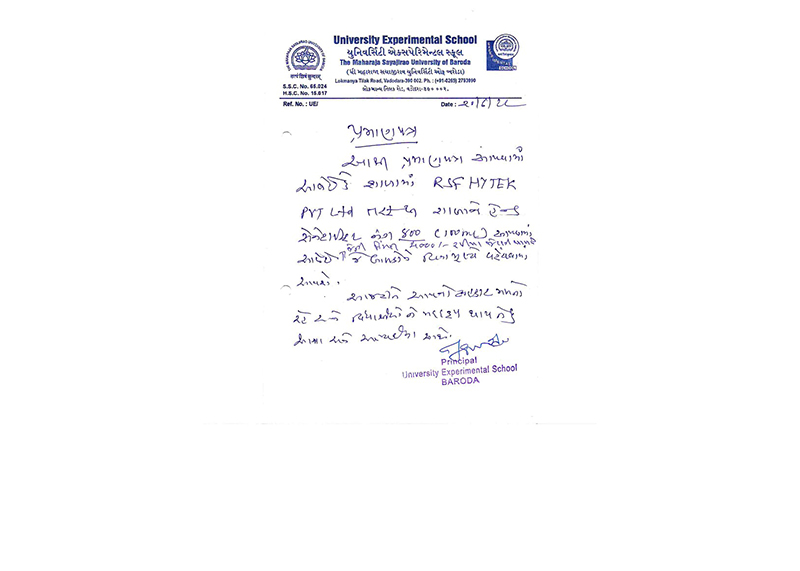 University Experimental School
યુનિવર્સિટી એક્સપેરિમેન્ટલ સ્કૂલ
The Maharaja Sayajirao University of Baroda
(ધી મહારાજા સયાજીરાવ યુનિવર્સિટી ઓફ બરોડા)
Lokmanya Tilak Road, Vadodara-390 002. Ph. : (+91-0265) 2793990
લોકમાન્ય તિલક રોડ, વડોદરા-૩૯૦ ૦૦૨.
સત્યં શિવં સુન્દરમ્
S.S.C. No. 65.024
H.S.C. No. 15.017
Ref. No. : UE/
Date :
પ્રમાણપત્ર
આથી પ્રમાણપત્ર આપવામાં
આવે છે કે શાળામાં RSF HYTEK
PVT તરફથી શાળાને હેન્ડ
સેનેટાઈઝર નંગ ૪૦૦ (૧૦૦ml) આપવામાં
કિંમત
આવેલ છે જે બાળકોને વિના મૂલ્યે
આવશે.
આપનો સહકાર મળતો
રહે અને વિદ્યાર્થીઓને મદદરૂપ થાય તેવી
આશા સહ
Principal
University Experimental School
BARODA